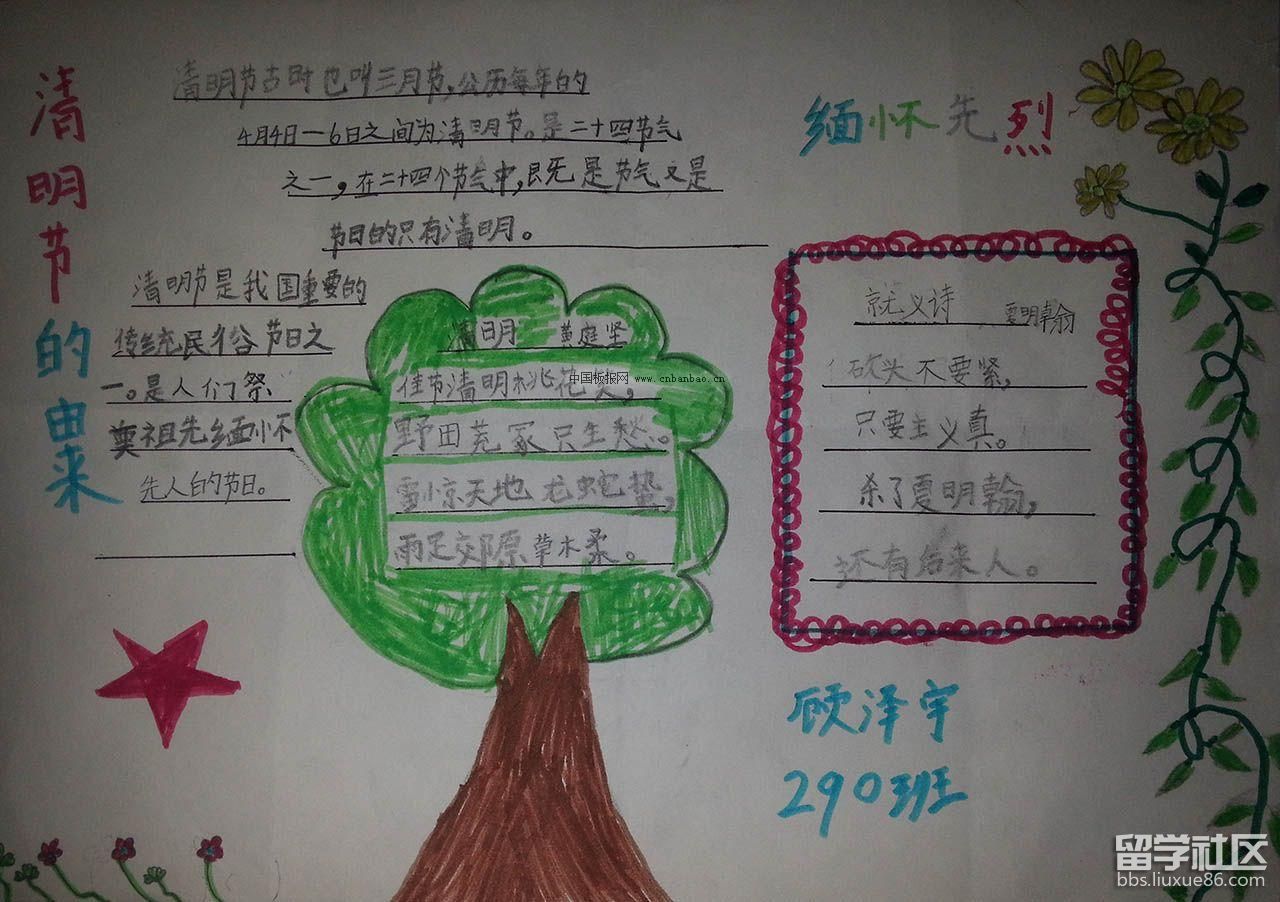 清明节的由来
清明节古时也叫三月节,公历每年的
4月4日—6日之间为清明节。是二十四节气
之一,在二十四个节气中,既是节气又是
节日的只有清明。
清明节是我国重要的
传统民俗节日之
一。是人们祭
奠祖先缅怀
先人的节日。
清明 黄庭坚
佳节清明桃花笑,
中国板报网 www.cnbanbao.cn
野田荒冢只生愁。
雷惊天地龙蛇蛰,
雨足郊原草木柔。
缅怀先烈
就义诗 夏明翰
砍头不要紧,
只要主义真。
杀了夏明翰,
还有后来人。
顾泽宇
290班
留学社区
bbs.liuxue86.com